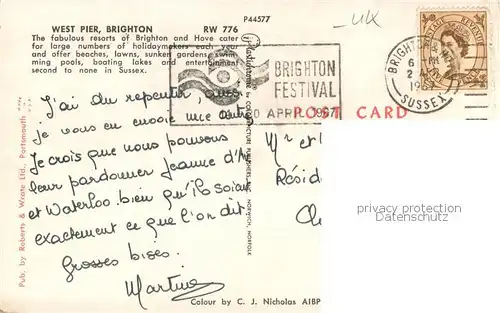 P44577
WEST PIER, BRIGHTON RW 776
The fabulous resorts of Brighton and Hove cater
for large numbers of holidaymakers each year
and offer beaches, lawns, sunken gardens, swim-
ming pools, boating lakes and entertainment
second to none in Sussex.
UK
BRIGHTON
FESTIVAL
30 APRIL 1967
BRIGHTON
6
PM
2
19
SUSSEX
POSTAGE REVENUE
POST CARD
J'ai du repentir, aussi
je vous en envoie une autre
Je crois que nous pouvons
leur pardonner Jeanne d'Arc
et Waterloo bien qu'ils soient
exactement ce que l'on dit.
Grosses bises.
Martine
Mr et
Résid
privacy protection
Datenschutz
Colour by C. J. Nicholas AIBP
Pub. by Roberts & Wrate Ltd., Portsmouth
COLOUR PICTURE PUBLISHERS
NORWICH, NORFOLK